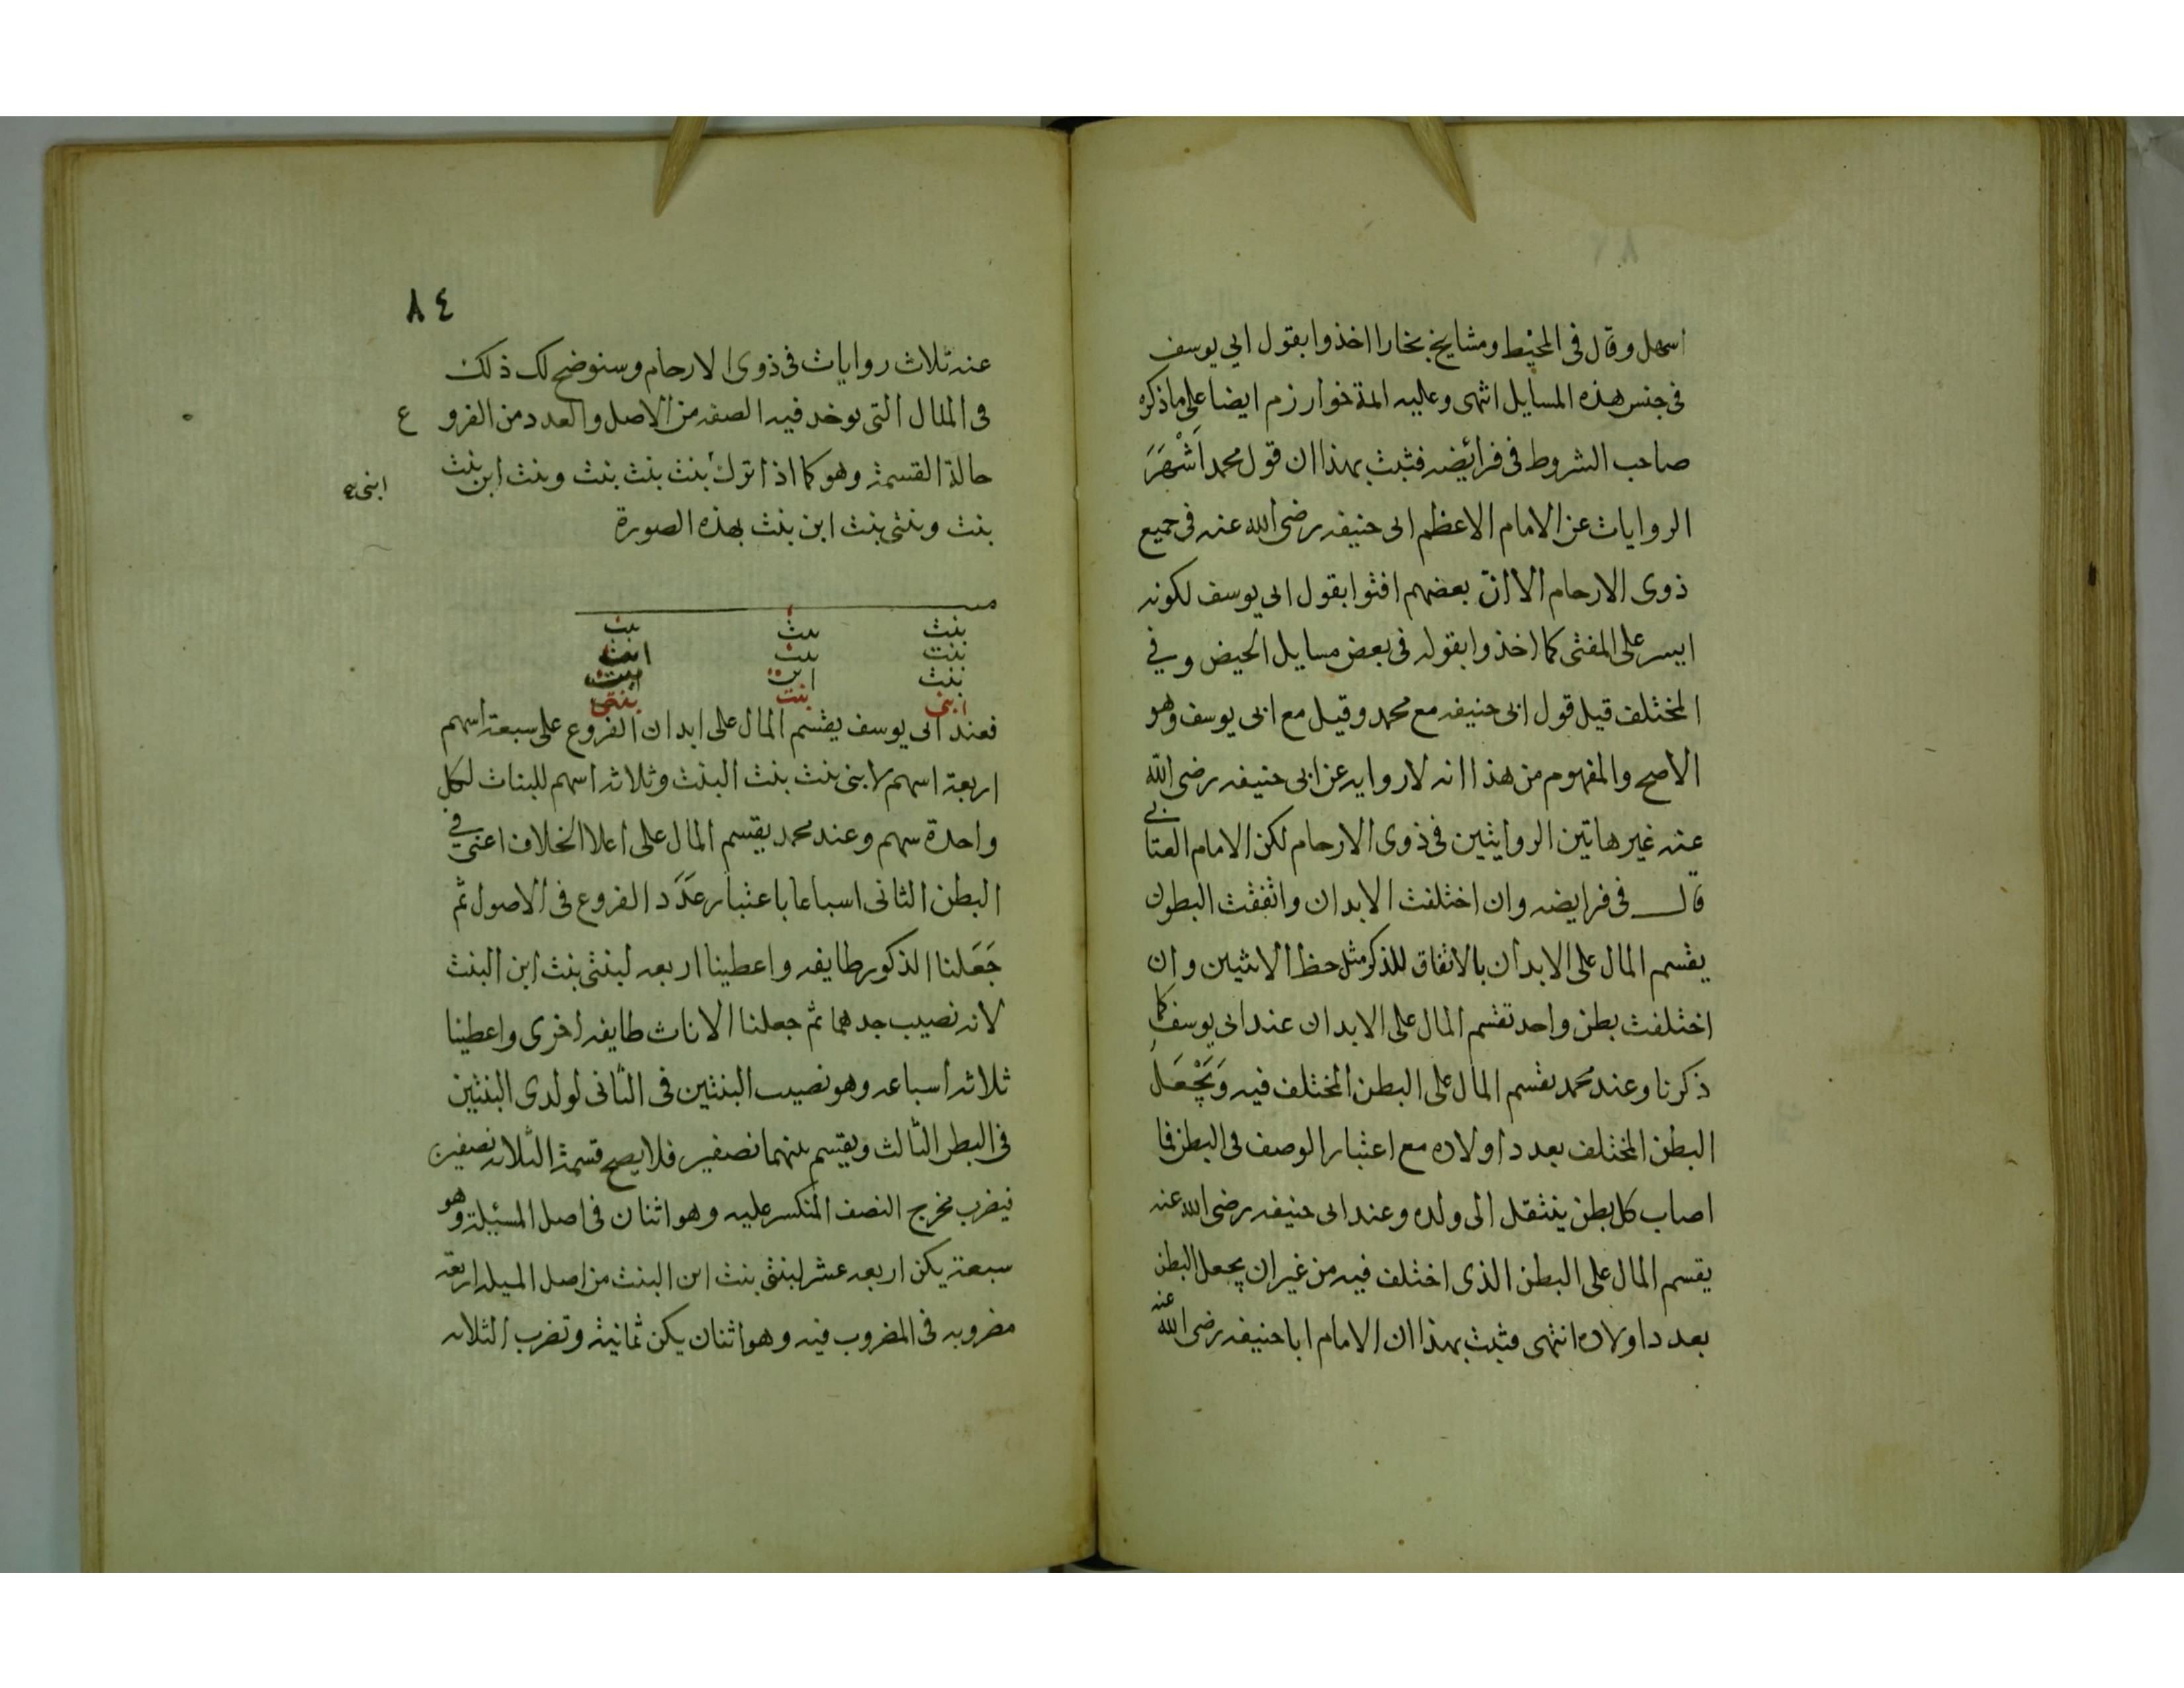 اسهل وقال فى المحيط ومشايخ بخارا اخذوا بقول ابي يوسف
فى جنس هذه المسايل انتهى وعليه ائمة خوارزم ايضا على ماذكره
صاحب الشروط فى فرائضه فثبت بهذا ان قول محمد اَشْهَرَ
الروايات عن الامام الاعظم ابى حنيفه رضى الله عنه فى جميع
ذوى الارحام الا انّ بعضهم افتوا بقول ابى يوسف لكونه
ايسر على المفتى كما اخذوا بقوله فى بعض مسايل الحيض وفي
المختلف قيل قول ابى حنيفه مع محمد وقيل مع ابى يوسف وهو
الاصح والمفهوم من هذا انه لا روايه عن ابى حنيفه رضى الله
عنه غير هاتين الروايتين فى ذوى الارحام لكن الامام العتابي
قال فى فرايضه وان اختلفت الابدان واتفقت البطون
يقسم المال على الابدان بالاتفاق للذكر مثل حظ الانثيين وان
اختلفت بطن واحد تقسم المال على الابدان عند ابى يوسف كما
ذكرنا وعند محمد يقسم المال على البطن المختلف فيه وَيَجْعَلُ
البطن المختلف بعدد اولاده مع اعتبار الوصف فى البطن فما
اصاب كل بطن ينتقل الى ولده وعند ابى حنيفه رضى الله عنه
يقسم المال على البطن الذى اختلف فيه من غير ان يجعل البطن
بعدد اولاده انتهى فثبت بهذا ان الامام ابا حنيفه رضى الله عنه
٨٤
عنه ثلاث روايات فى ذوى الارحام وسنوضح لك ذلك
فى المثال التى يوخد فيه الصفه من الاصل والعدد من الفروع
حالة القسمة وهو كما اذا ترك بنت بنت بنت وبنت ابن بنت
ابنى
بنت وبنتى بنت ابن بنت بهذه الصورة
بنت بنت بنت
بنت بنت ابن
بنت ابن بنت
ابنى بنت بنتى
فعند ابى يوسف يقسم المال على ابدان الفروع على سبعة اسهم
اربعة اسهم لابنى بنت بنت البنت وثلاثه اسهم للبنات لكل
واحدة سهم وعند محمد يقسم المال على اعلا الخلاف اعنى في
البطن الثانى اسباعا باعتبار عَدَد الفروع فى الاصول ثم
جَعَلنا الذكور طايفه واعطينا اربعه لبنتى بنت ابن البنت
لانه نصيب جدهما ثم جعلنا الاناث طايفه اخرى واعطينا
ثلاثه اسباعه وهو نصيب البنتين فى الثانى لولدى البنتين
فى البطن الثالث ويقسم بينهما نصفين فلا يصح قسمة الثلاثه نصفين
فيضرب مخرج النصف المنكسر عليه وهو اثنان فى اصل المسئيلة وهو
سبعة يكن اربعه عشر لبنتى بنت ابن البنت من اصل المسيله اربعة
مضروبه فى المضروب فيه وهو اثنان يكن ثمانية وتضرب الثلاثه